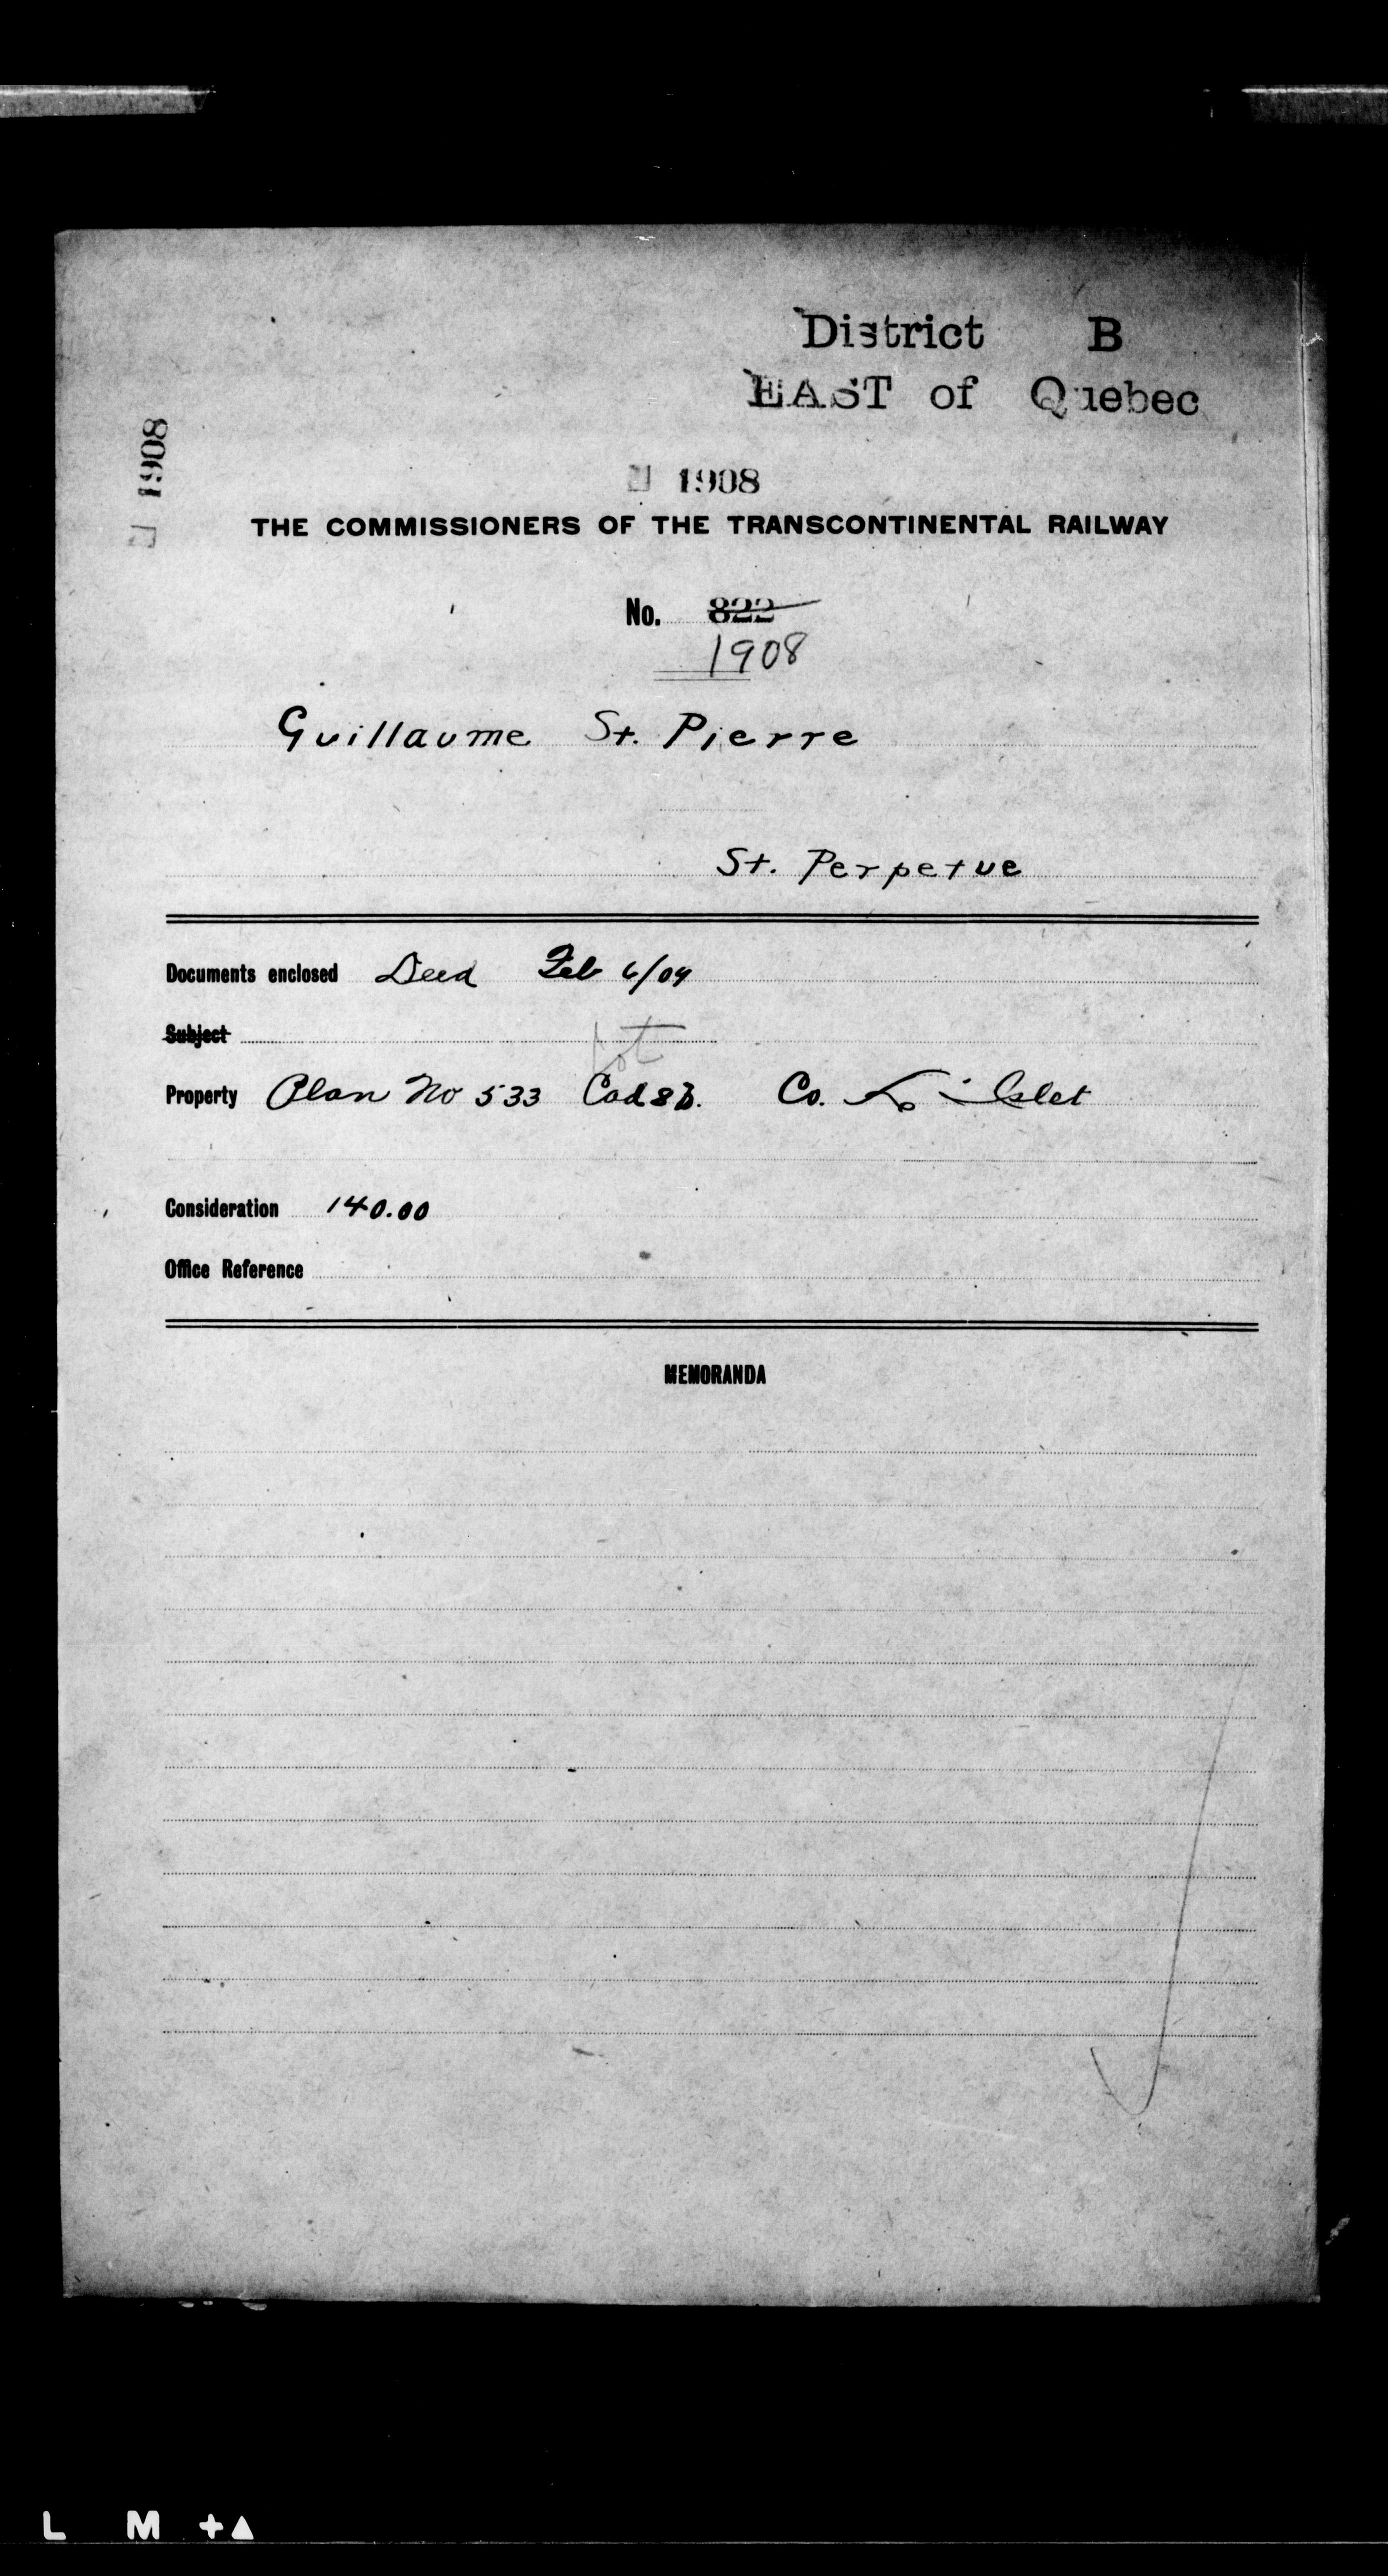 District B
EAST of Quebec
1908
1908
THE COMMISSIONERS OF THE TRANSCONTINENTAL RAILWAY
No. 822
1908
Guillaume St. Pierre
St. Perpetue
Documents enclosed Deed Feb 6/09
Subject
Lot
Property Plan No 533 Cad 8b. Co. L'Islet
Consideration 140.00
Office Reference
MEMORANDA
L M +▲